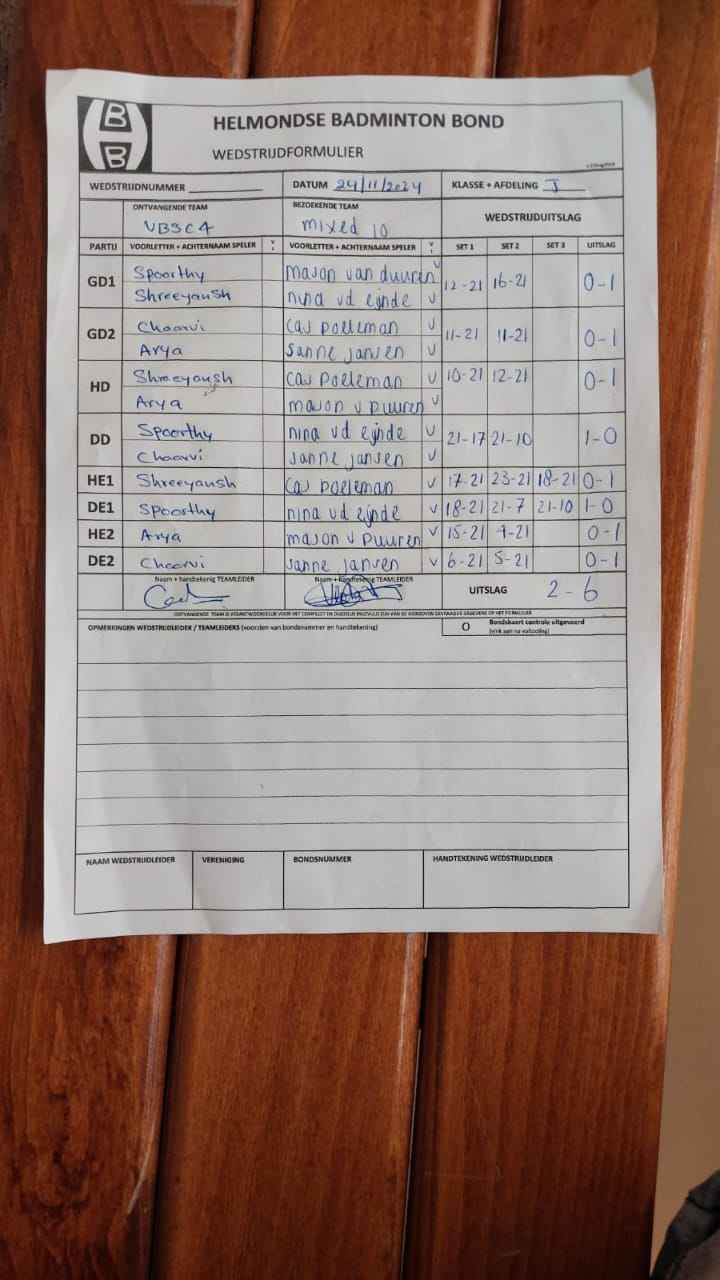 HELMONDSE BADMINTON BOND
WEDSTRIJDFORMULIER
WEDSTRIJDNUMMER DATUM 24/11/2024 KLASSE + AFDELING J
ONTVANGENDE TEAM BEZOEKENDE TEAM WEDSTRIJDUITSLAG
VBSC4 mixed 10
PARTIJ VOORLETTER + ACHTERNAAM SPELER V VOORLETTER + ACHTERNAAM SPELER V SET 1 SET 2 SET 3 UITSLAG
GD1 Spoorthy mason van duuren V 12-21 16-21 0-1
Shreeyansh nina vd eijnde V
GD2 Chaarvi cas poeleman V 11-21 11-21 0-1
Arya sanne jansen V
HD Shreeyansh cas poeleman V 10-21 12-21 0-1
Arya mason v puuren V
DD Spoorthy nina vd eijnde V 21-17 21-10 1-0
Chaarvi sanne jansen V
HE1 Shreeyansh cas poeleman V 17-21 23-21 18-21 0-1
DE1 Spoorthy nina vd eijnde V 18-21 21-7 21-10 1-0
HE2 Arya mason v puuren V 15-21 9-21 0-1
DE2 Chaarvi sanne jansen V 6-21 5-21 0-1
Naam + handtekenig TEAMLEIDER Naam + handtekenig TEAMLEIDER UITSLAG 2-6
OPMERKINGEN WEDSTRIJDLEIDER / TEAMLEIDERS (voorzien van bondsnummer en handtekening) O Bondskaart controle uitgevoerd
NAAM WEDSTRIJDLEIDER VERENIGING BONDSNUMMER HANDTEKENING WEDSTRIJDLEIDER